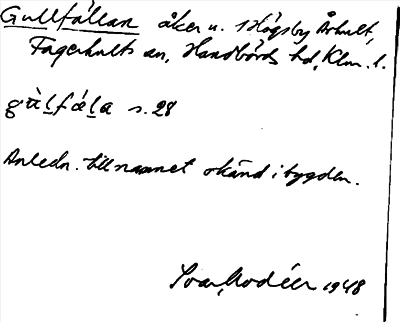 Gullfällan åker u. Högsby Århult,
Fagerhults sn, Handbörds hd, Klm. l.
gu̇̀l̠fǽl̠a s. 28
Anledn. till namnet okänd i bygden.
Ivar Modéer 1948